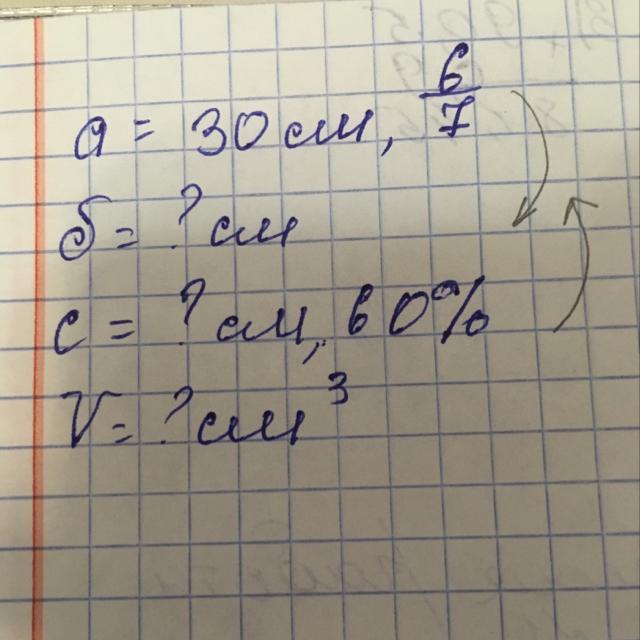 a = 30 см, 6/7
б = ? см
c = ? см, 60%
V = ? см³